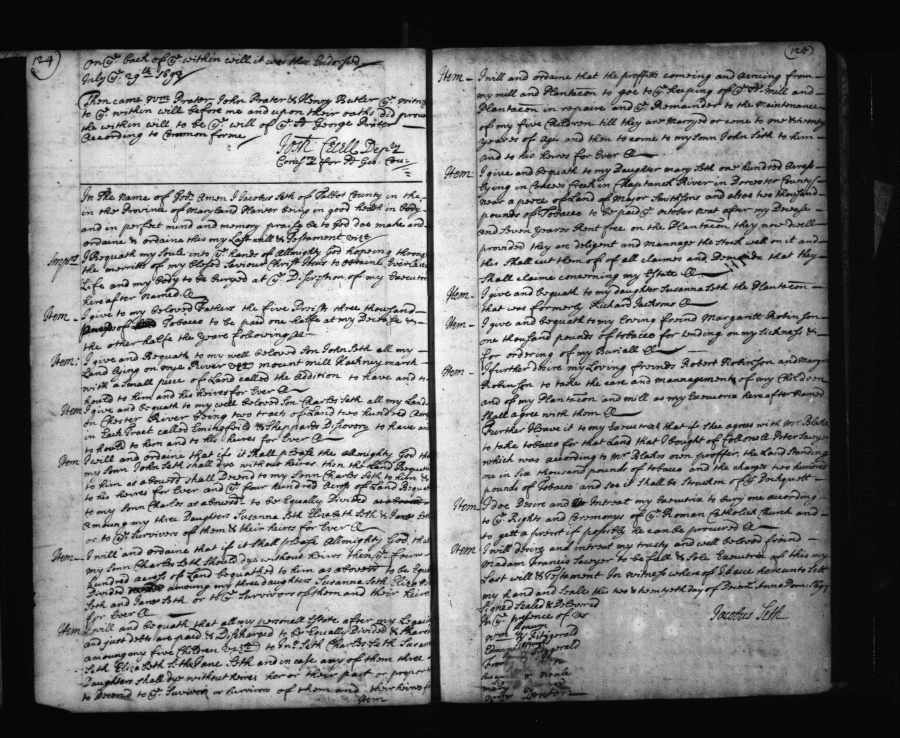 124
On ye back of ye within will it was thus Endorsed
July ye 29th 1698
Then came Wm Prater John Prater & Henry Butler ye witn
to ye within will before me and upon their oaths did prove
the within will to be ye will of ye sd George Prater
According to Common forme
Deply
Comss for
In The Name of God Amen I Jacobus Seth of Talbot County in the
in the Province of Maryland Planter being in good health in body
and in perfect mind and memory praise be to God doe make and
ordaine & ordaine this my Last will & Testament vizt
I Bequeath my Soule into ye hands of Allmighty God hopeing through
the merritts of my blessed Saviour Christ Jesus to obtaine Everlast
Life and my body to be buryed at ye Discretion of my Executrix
hereafter named
Item I give to my beloved Fathers the five Preists three thousand
of Tobacco to be paid one halfe at my Decease &
the other halfe the yeare following
Item: I give and Bequeath to my well beloved Son John Seth all my
Land lying on Wye River vizt mount mill Hackney marsh
with a Small piece of Land called the Addition to have and to
hould to him and his heires for Ever
Item I give and bequeath to my well beloved Son Charles Seth all my Land
on Chester River being two tracts of Land two hundred Acres
in Each Tract called & Sheppards Discovery to have an
to hould to him and to his heires for Ever
Item I will and ordaine that if it Shall please the Almighty God th
my Sonn John Seth shall dye without heires then the Land Bequeath
to him as abovesd shall Decend to my Sonn Charles Seth to him &
to his heires for Ever and ye four hundred Acres of Land Bequeath
to my Sonn Charles as abovesd to be Equally Divided
among my three Daughters Susanna Seth Elizabeth Seth & Jane Seth
or to ye Survivors of them & their heires for Ever
Item I will and ordaine that if it shall please Almighty God that
my Sonn Charles Seth Should dye without heires then ye four
hundred acres of Land bequeathed to him as abovesd to be Equa
Divided among my three daughters Susanna Seth Eliza
Seth and Jane Seth or to ye Survivors of them and their heires
for Ever
Item I will and bequeath that all my personall Estate after my Legacies
and just debts are paid & Discharged to be Equally Divided & Shared
among my five Children vizt to Jno Seth Charles Seth Susan
Seth Elizabeth Seth Jane Seth and in case any of them three
Daughters shall dye without heires her or their part or propor
to Decend to ye Survivor or survivors of them and their heires
Item
125
Item I will and ordaine that the proffitts comeing and acruing from
my mill and Plantacon to goe to ye keeping of ye sd mill and
Plantacon in repaire and ye Remainder to the Maintenance
of my five Children till they are Marryed or come to one & twenty
yeares of Age and then to come to my Sonn John Seth to him
and to his heires for Ever
Item I give and bequeath to my Daughter Mary Seth one hundred Acres
lying in Creek in Chaptanck River in Dorcester County
near a peece of Land of Major Smithsons and alsoe two thousand
pounds of Tobacco to be paid ye October next after my Decease
and Seven yeares Rent free on the Plantacon they now dwell
provided they are diligent and mannage the Stock well on it and
this Shall cut them of of all claimes and Demands that they
Shall claime concerning my Estate
Item I give and bequeath to my daughter Susanna Seth the Plantacon
that was formerly Richard Jacksons
Item I give and bequeath to my loving freind Margarett Robinson
one thousand pounds of tobacco for tending on my Sickness &
for ordering of my Buriall
Item I further desire my Loving freinds Robert Robinson and Marga
Robinson to take the care and mannagement of my Children
and of my Plantacon and mill as my Executrix hereafter Named
Shall agree with them
Further I leave it to my Executrix that if Shee agrees with Mr Blake
to take tobacco for that Land that I bought of Collonel Peter Sawyer
which was according to Mr Blakes own proffer the Land Standing
me in Six thousand pounds of tobacco and the charges two hundred
pounds of Tobacco and soe it shall be
Item I doe Desire and Intreat my Executrix to bury me according
to ye Rights and Ceremoneys of ye Roman Catholick Church and
to gett a preist if possibly he can be procured
Item I will desire and intreat my trusty and well beloved freind
Madam Francis Sawyer to be full & Sole Executrix of this my
Last will & Testament In witness whereof I have hereunto Sett
my hand and Seale this two & twentyth day of
Signed Sealed & Delivered
In ye presence of us
Jacobus Seth
Wm Fitzgerald
Denton